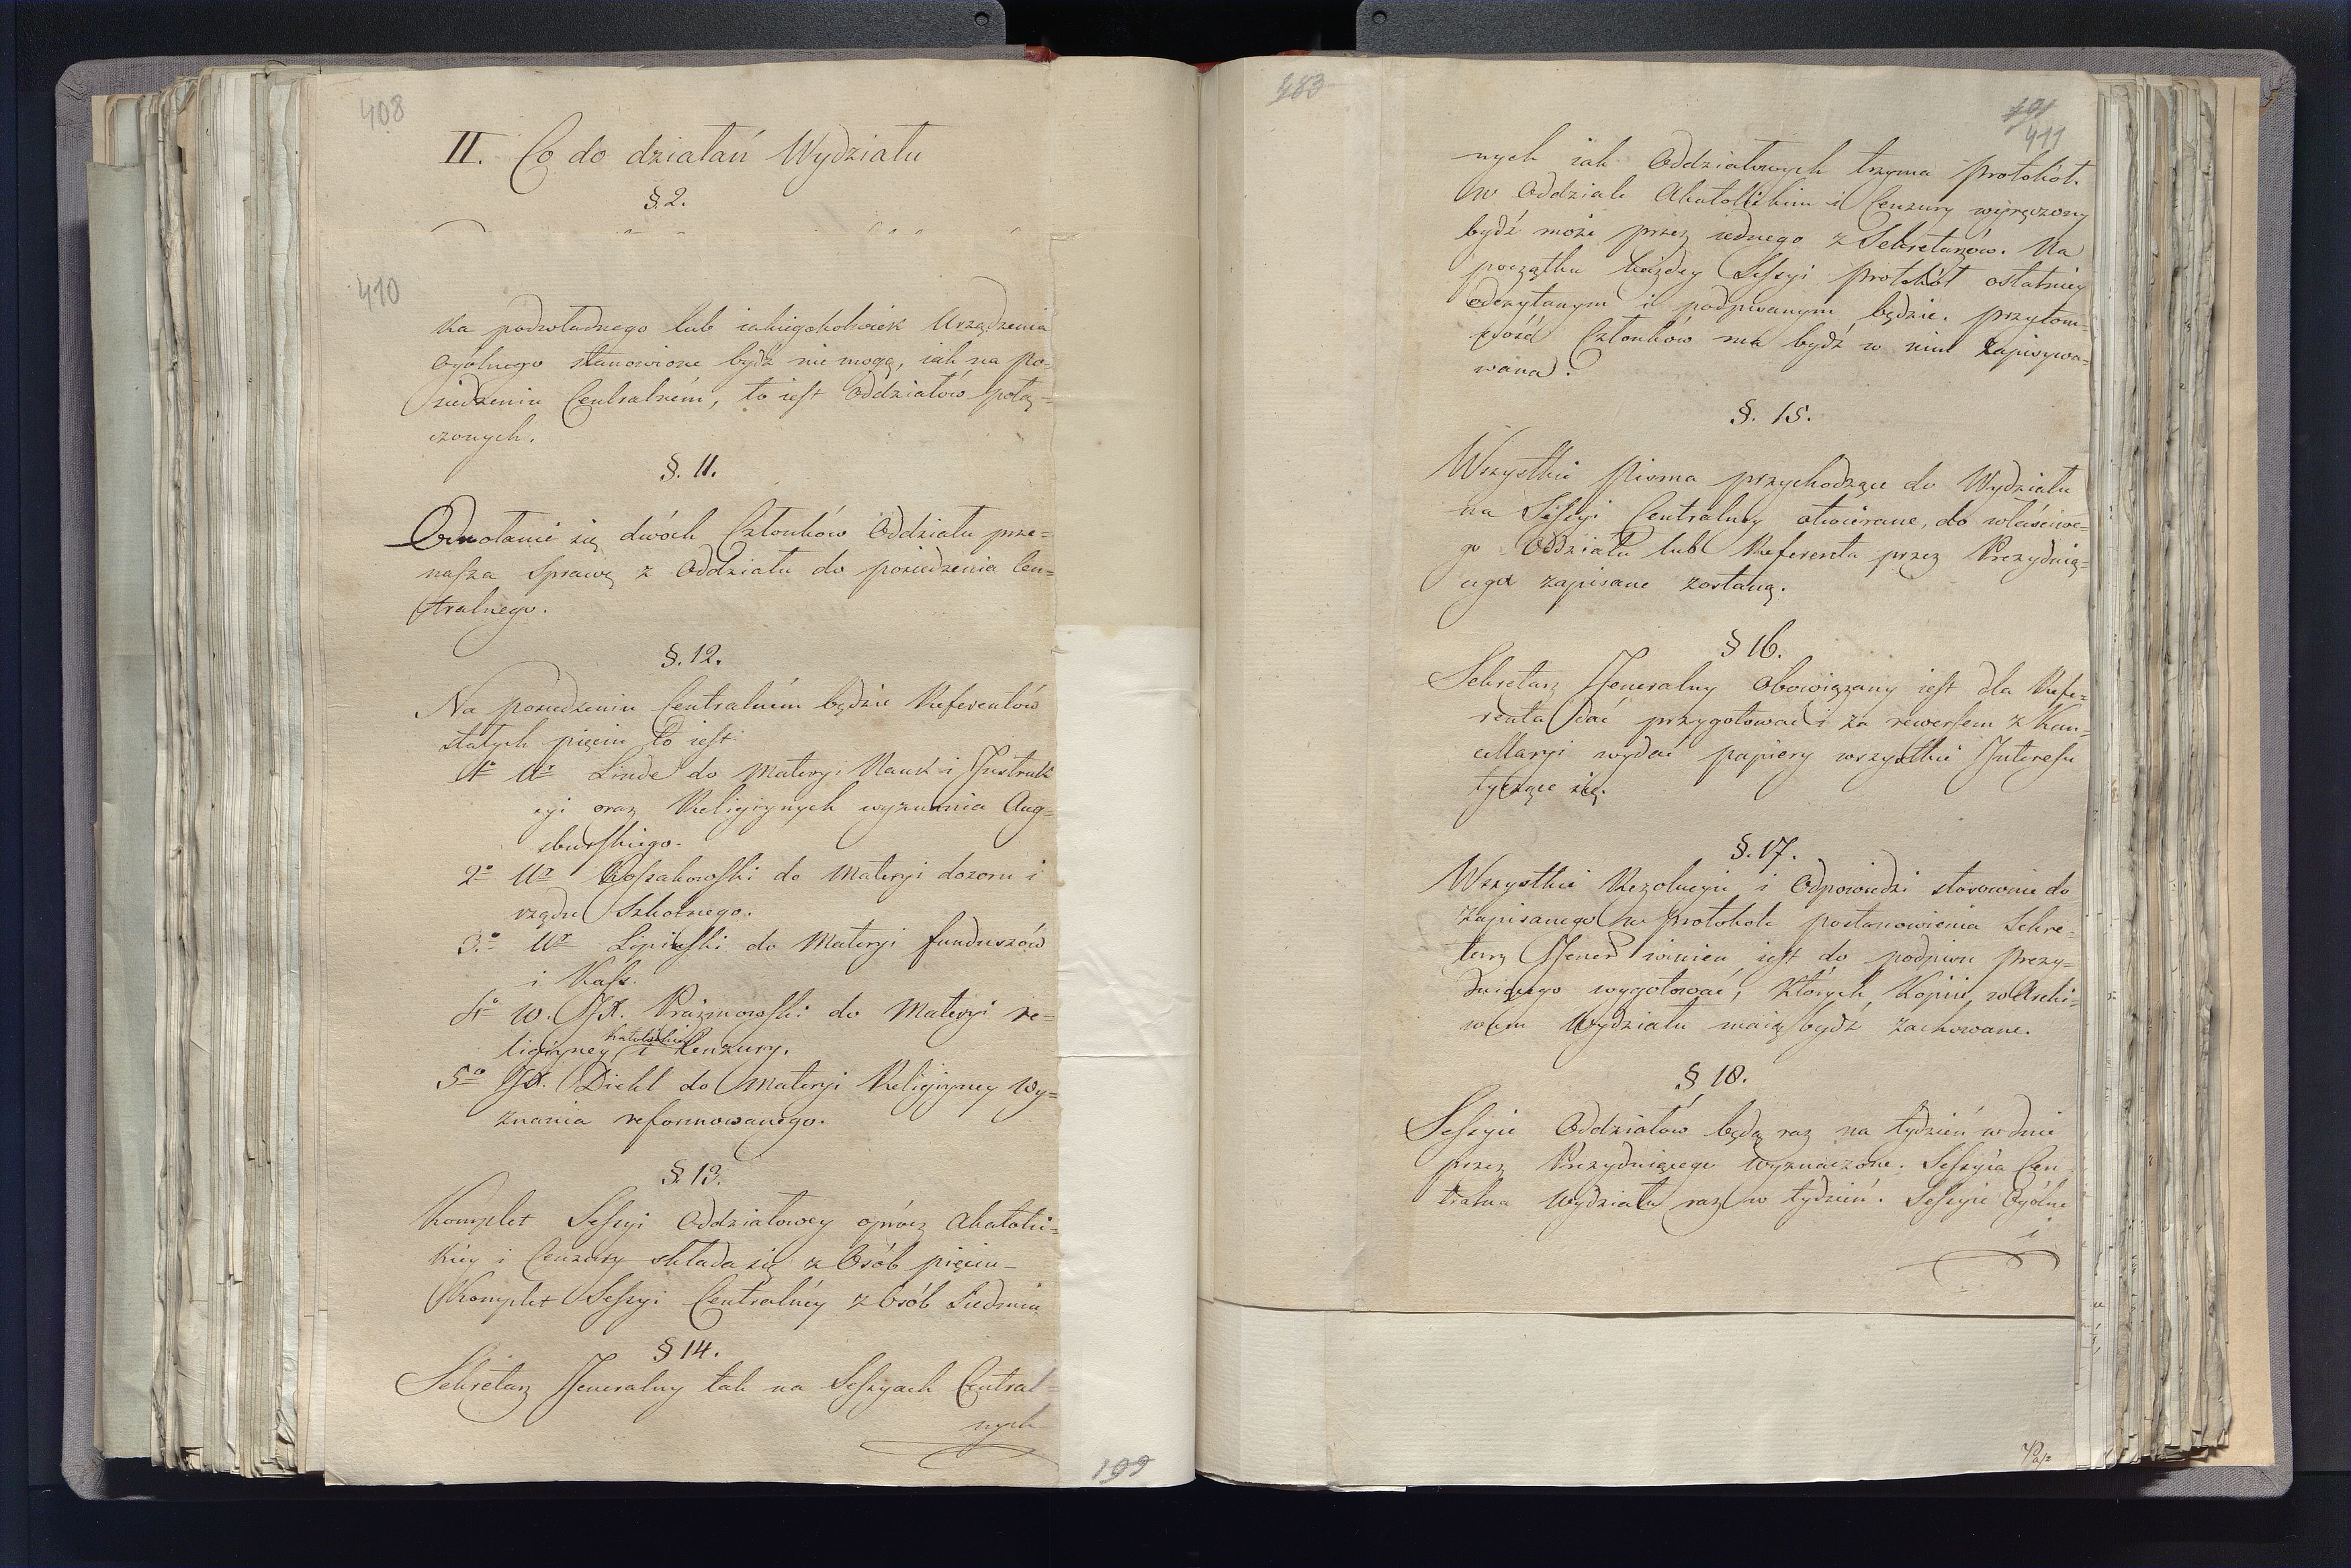 408
II. Co do działań Wydziału
§. 2.
410
ka podwładnego lub iakiegokolwiek Urządzenia
ogólnego stanowione bydź nie mogą, iak na Po-
siedzeniu Centralném, to iest Oddziałów połą-
czonych.
§. 11.
Odwołanie się dwóch Członków Oddziału prze-
nasza Sprawę z Oddziału do posiedzenia Cen-
tralnego.
§. 12.
Na posiedzeniu Centralném będzie Referentów
stałych pięciu to iest:
1o Ur Linde do Materyi Nauk i Instruk
cyi oraz Religiynych wyznania Aug-
sburskiego.
2o Ur Kossakowski do Materyi dozoru i
rządu Szkolnego.
3o Ur Lipiński do Materyi funduszów
i Kass.
4o W. JX. Prażmowski do Materyi re-
ligiyney Katolickiey i Cenzury.
5o JX. Diehl do Materyi Religiyney Wy-
znania reformowanego.
§. 13.
Komplet Sessyi Oddziałowey oprócz Akatolic-
kiey i Cenzury składa się z Osób pięciu
Komplet Sessyi Centralney z Osób Siedmiu
§ 14.
Sekretarz Jeneralny tak na Sessyach Central-
nych
199
483
411
nych iak Oddziałowych trzyma protokół.
W Oddziale Akatolickim i Cenzury wyręczony
bydź może przez iednego z Sekretarzów. Na
początku każdey Sessyi protokół ostatniey
odczytanym i podpisanym będzie. przytom-
ność Członków ma bydź w nim Zapisywa-
wana.
§. 15.
Wszystkie Pisma przychodzące do Wydziału
na Sessyi Centralney otwierane, do właściwe-
go Oddziału lub Referenta przez Prezyduią-
cego zapisane zostaną.
§ 16.
Sekretarz Jeneralny obowiązany iest dla Refe-
renta dać przygotować i za rewersem z Kan-
cellaryi wydać papiery wszystkie Interessu
tyczące się.
§. 17.
Wszystkie Rezolucyie i Odpowiedzi stosownie do
Zapisanego w protokole postanowienia Sekre-
tarz Jener winien iest do podpisu Prezy-
duiącego wygotować, których Kopiie w Archi-
wum Wydziału maią bydź zachowane.
§ 18.
Sessyie Oddziałów będą raz na tydzień w dnie
przez Prezyduiącego Wyznaczone. Sessyia Cen
tralna Wydziału raz w tydzień. Sessyie Ogólne
i